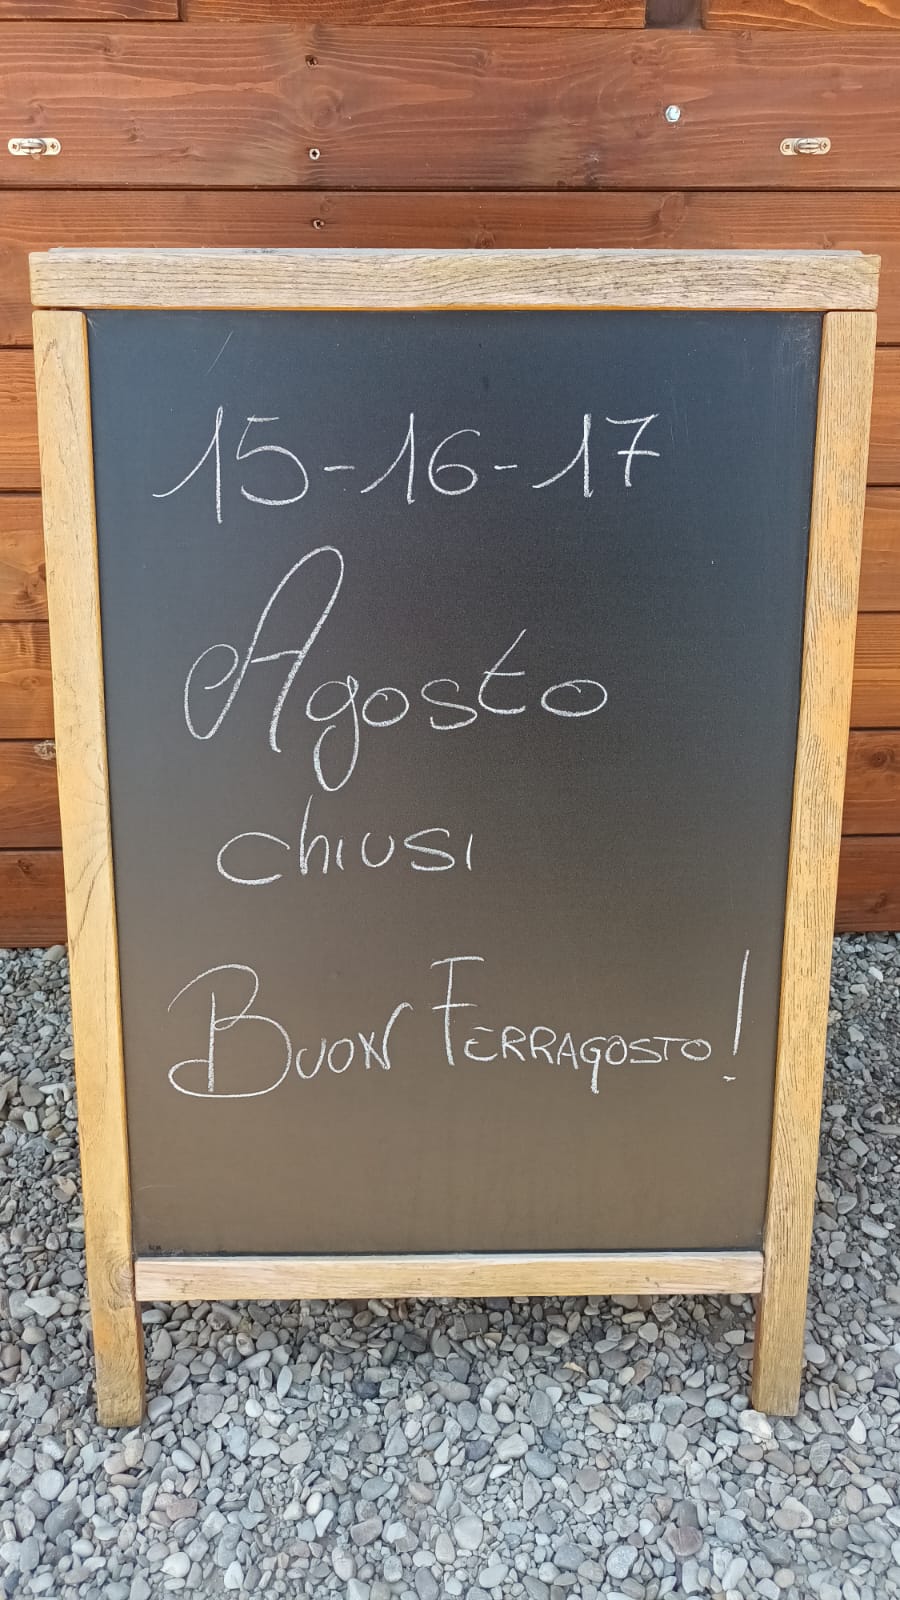 15-16-17
Agosto
chiusi
Buon Ferragosto!